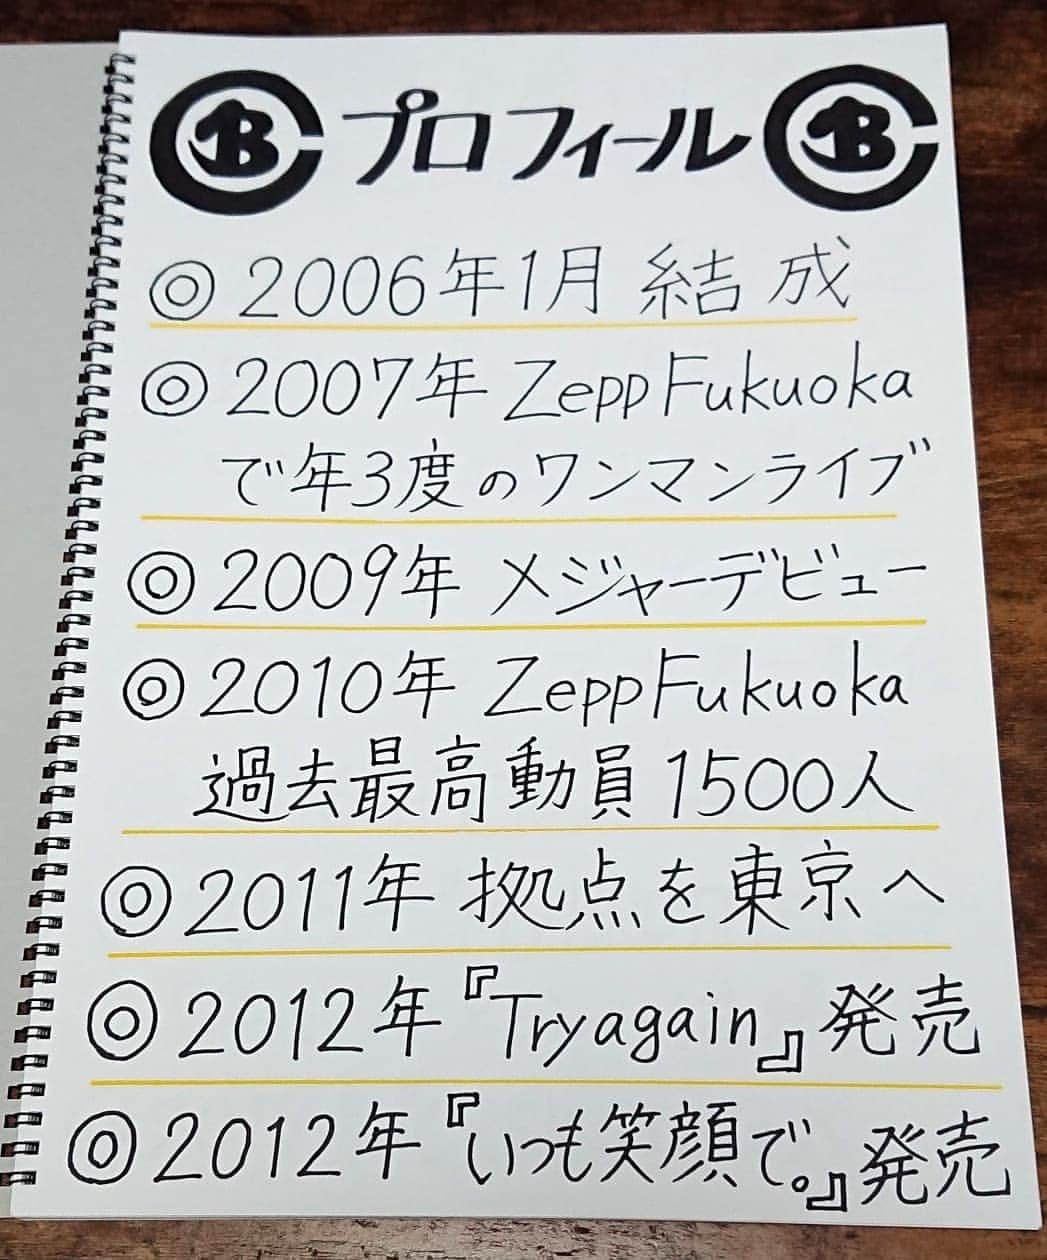 CB プロフィール CB
◎2006年1月 結成
◎2007年 Zepp Fukuoka
で年3度のワンマンライブ
◎2009年 メジャーデビュー
◎2010年 Zepp Fukuoka
過去最高動員1500人
◎2011年 拠点を東京へ
◎2012年『Tryagain』発売
◎2012年『いつも笑顔で。』発売